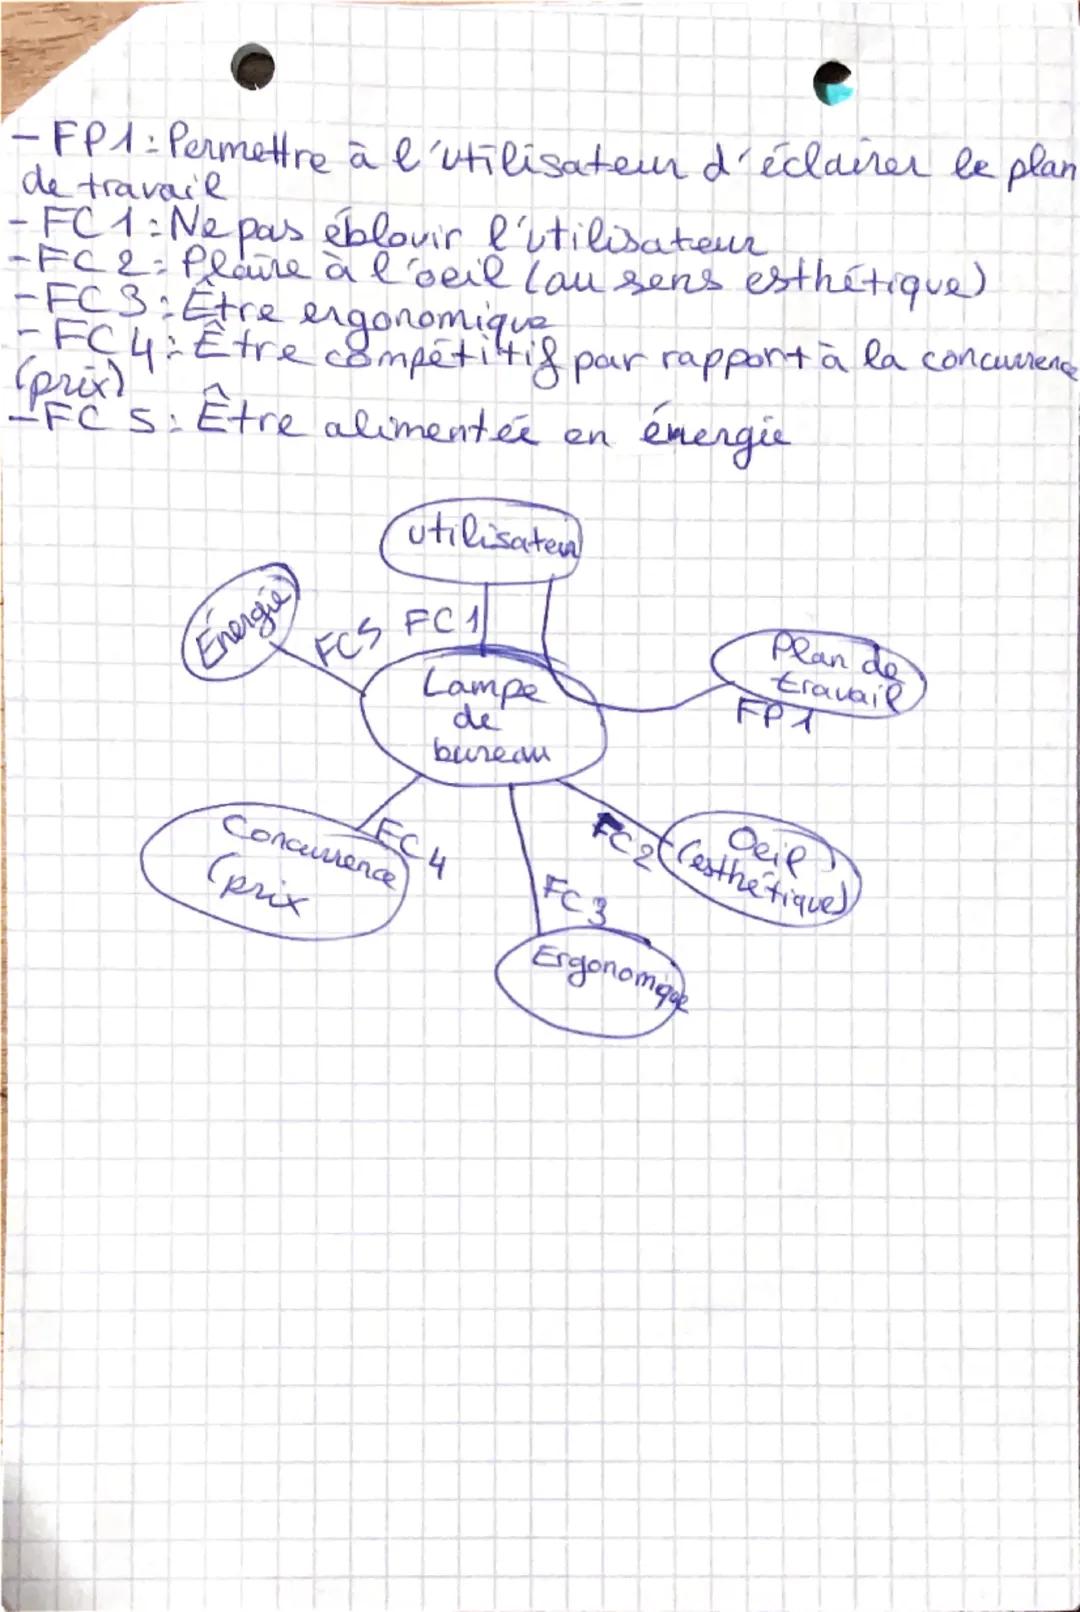 - FP1: Permettre à l'utilisateur d'éclairer le plan
de travail
- FC1: Ne pas éblouir l'utilisateur
- FC2: Plaire à l'oeil (au sens esthétique)
- FC3: Être ergonomique
- FC4: Être compétitif par rapport à la concurrence
(prix)
- FC5: Être alimentée en énergie
utilisateur
Énergie
FC5
FC1
Plan de
travail
FP1
Lampe
de
bureau
Concurrence
(prix
FC4
FC2
Oeil
(esthétique)
FC3
Ergonomique